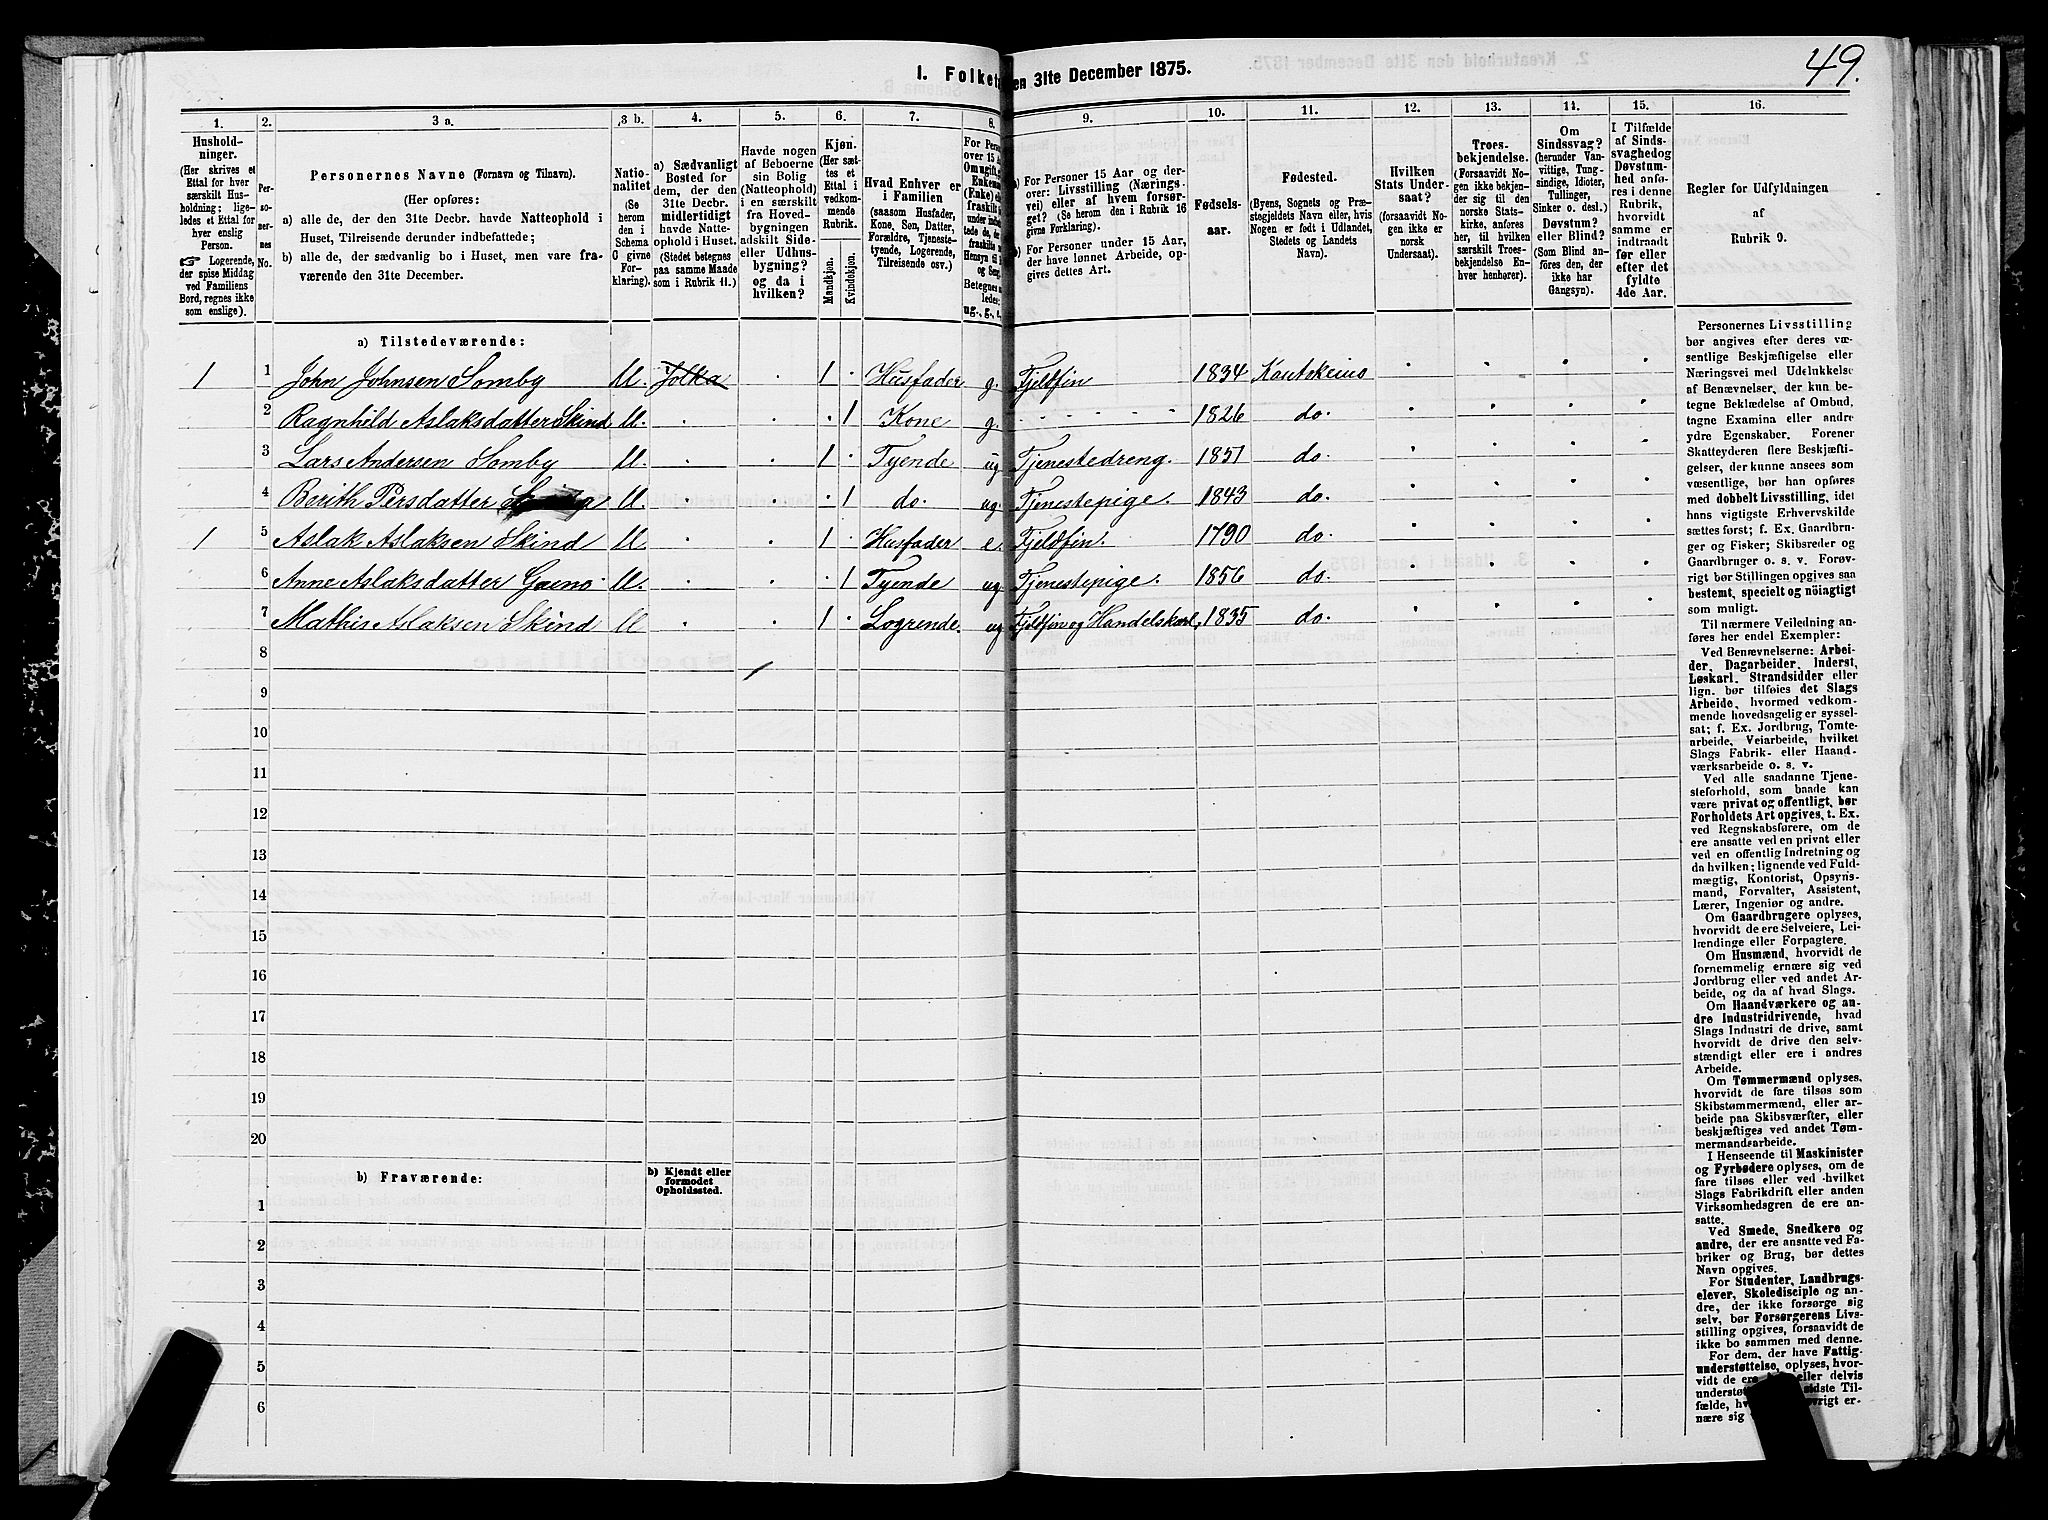 49.
I. Folketæ
en 31te December 1875.
1. 2. 3 a. 3 b. 4. 5. 6. 7. 8. 9. 10. 11. 12. 13. 14. 15. 16.
Hushold-
ninger.
(Her skrives et
Ettal for hver
særskilt Hus-
holdning; lige-
ledes et Ettal for
hver enslig
Person.
☞ Logerende,
der spise Middag
ved Familiens
Bord, regnes ikke
som enslige).
Per-
so-
ner-
nes
No.
Personernes Navne (Fornavn og Tilnavn).
(Her opføres:
a) alle de, der den 31te Decbr. havde Natteophold i
Huset, Tilreisende derunder indbefattede;
b) alle de, der sædvanlig bo i Huset, men vare fra-
værende den 31te December.
Natio-
nalitet
(Se
herom
den i
Schema
C givne
For-
klaring).
a) Sædvanligt
Bosted for
dem, der den
31te Decbr.
midlertidigt
havde Natte-
ophold i Huset.
(Stedet betegnes
paa samme Maade
som i Rubrik 11.)
Havde nogen
af Beboerne
sin Bolig
(Natteophold)
i en særskilt
fra Hoved-
bygningen
adskilt Side-
eller Udhus-
bygning?
og da i
hvilken?
Kjøn.
(Her sæt-
tes et
Ettal i
vedkom-
mende
Rubrik.
Mandkjøn.
Kvindekjøn.
Hvad Enhver er
i Familien
(saasom Husfader,
Kone, Søn, Datter,
Forældre, Tjeneste-
tyende, Logerende,
Tilreisende osv.)
For Person
over 15 Aa
Om ugift, g
Enkem
(Enke) e
fraskilt
tede de,
fraskilte
Hensyn til
og Seng
Betegnes
ledes:
ug., g., e.,
a) For Personer 15 Aar og der-
over: Livsstilling (Nærings-
vei) eller af hvem forsør-
get? (Se herom den i Rubrik 16
givne Forklaring).
b) For Personer under 15 Aar,
der have lønnet Arbeide, op-
gives dettes Art.
Fødsels-
aar.
Fødested.
(Byens, Sognets og Præ-
stegjeldets Navn eller, hvis
Nogen er født i Udlandet,
Stedets og Landets
Navn).
Hvilken
Stats Under-
saat?
(forsaavidt No-
gen ikke er
norsk
Undersaat).
Troes-
bekjendelse.
(Forsaavidt No-
gen ikke bekjen-
der sig til den
norske Stats-
kirke, anføres
her, til hvilken
særskilt Troes-
bekjendelse En-
hver henhører).
Om
Sindssvag?
(herunder Van-
vittige, Tung-
sindige, Idioter,
Tullinger,
Sinker o. desl.)
Døvstum?
eller Blind?
(Som Blind an-
føres den, der
ikke har
Gangsyn).
I Tilfælde
af Sinds-
svaghed og
Døvstum-
hed anfø-
res i denne
Rubrik,
hvorvidt
samme er
indtraadt
før eller
efter det
fyldte
4de Aar.
Regler for Udfyldningen
af
Rubrik 9.
a) Tilstedeværende:
1 1 John Johnsen Somby M. Jolka · 1 · Husfader g. Fjeldfin 1834 Kautokeino
2 Ragnhild Aslaksdatter Skind M. · · · 1 Kone g. 1826 do.
3 Lars Andersen Somby M. · · 1 · Tyende ug Tjenestedreng. 1851 do.
4 Berith Persdatter M. · · · 1 do. ug. Tjenestepige. 1843 do.
1 5 Aslak Aslaksen Skind M. · · 1 · Husfader e. Fjeldfin. 1790 do.
6 Anne Aslaksdatter Gaino M. · · · 1 Tyende ug Tjenestepige. 1856 do.
7 Mathis Aslaksen Skind M · · 1 · Logrende. ug Fjeldfin og Handelskarl, 1835 do.
8
9
10
11
12
13
14
15
16
17
18
19
20
b) Fraværende:
b) Kjendt eller
formodet
Opholdssted.
1
2
3
4
5
6
Personernes Livsstilling
bør angives efter deres væ-
sentlige Beskjæftigelse eller
Næringsvei med Udelukkelse
af Benævnelser, der kun be-
tegne Beklædelse af Ombud,
tagne Examina eller andre
ydre Egenskaber. Forener
Skatteyderen flere Beskjæfti-
gelser, der kunne ansees som
væsentlige, bør han opføres
med dobbelt Livsstilling, idet
hans vigtigste Erhvervskilde
sættes først; f. Ex. Gaardbru-
ger og Fisker; Skibsreder og
Gaardbruger o. s. v. Forøv-
rigt bør Stillingen opgives saa
bestemt, specielt og nöiagtigt
som muligt.
Til nærmere Veiledning an-
føres her endel Exempler:
Ved Benævnelserne: Arbei-
der, Dagarbeider, Inderst,
Løskarl, Strandsidder eller
lign. bør tilføies det Slags
Arbeide, hvormed vedkom-
mende hovedsagelig er syssel-
sat; f. Ex. Jordbrug, Tomte-
arbeide, Veiarbeide, hvilket
Slags Fabrik- eller Haand-
værksarbeide o. s. v.
Ved alle saadanne Tjene-
steforhold, som baade kan
være privat og offentligt, bør
Forholdets Art opgives, t. Ex.
ved Regnskabsførere, om de
ere ansatte ved en privat eller
ved en offentlig Indretning og
da hvilken; lignende ved Fuld-
mægtig, Kontorist, Opsyns-
mand, Forvalter, Assistent,
Lærer, Ingeniør og andre.
Om Gaardbrugere oplyses,
hvorvidt de ere Selveiere, Lei-
lændinge eller Forpagtere.
Om Husmænd, hvorvidt de
fornemmelig ernære sig ved
Jordbrug eller ved andet Ar-
beide, og da af hvad Slags.
Om Haandværkere og an-
dre Industridrivende, hvad
Slags Industri de drive, samt
hvorvidt de drive den selv-
stændigt eller ere i andres
Arbeide.
Om Tømmermænd oplyses,
hvorvidt de fare tilsøs som
Skibstømmermænd, eller ar-
beide paa Skibsværfter, eller
beskjæftiges ved andet Tøm-
mermandsarbeide.
I Henseende til Maskinister
og Fyrbødere oplyses, om de
fare tilsøs eller ved hvilket
Slags Fabrikdrift eller anden
Virksomhedsgren de ere an-
satte.
Ved Smede, Snedkere og
andre, der ere ansatte ved Fa-
briker og Brug, bør dettes
Navn opgives.
For Studenter, Landbrugs-
elever, Skoledisciple og an-
dre, der ikke forsørge sig
selv, bør Forsørgerens Livs-
stilling opgives, forsaavidt de
ikke bo sammen med denne.
For dem, der have Fattig-
understøttelse, oplyses, hvor-
vidt de ere eller delvis
understøt sidste Til-
fælde, hv vrigt er-
nære sig